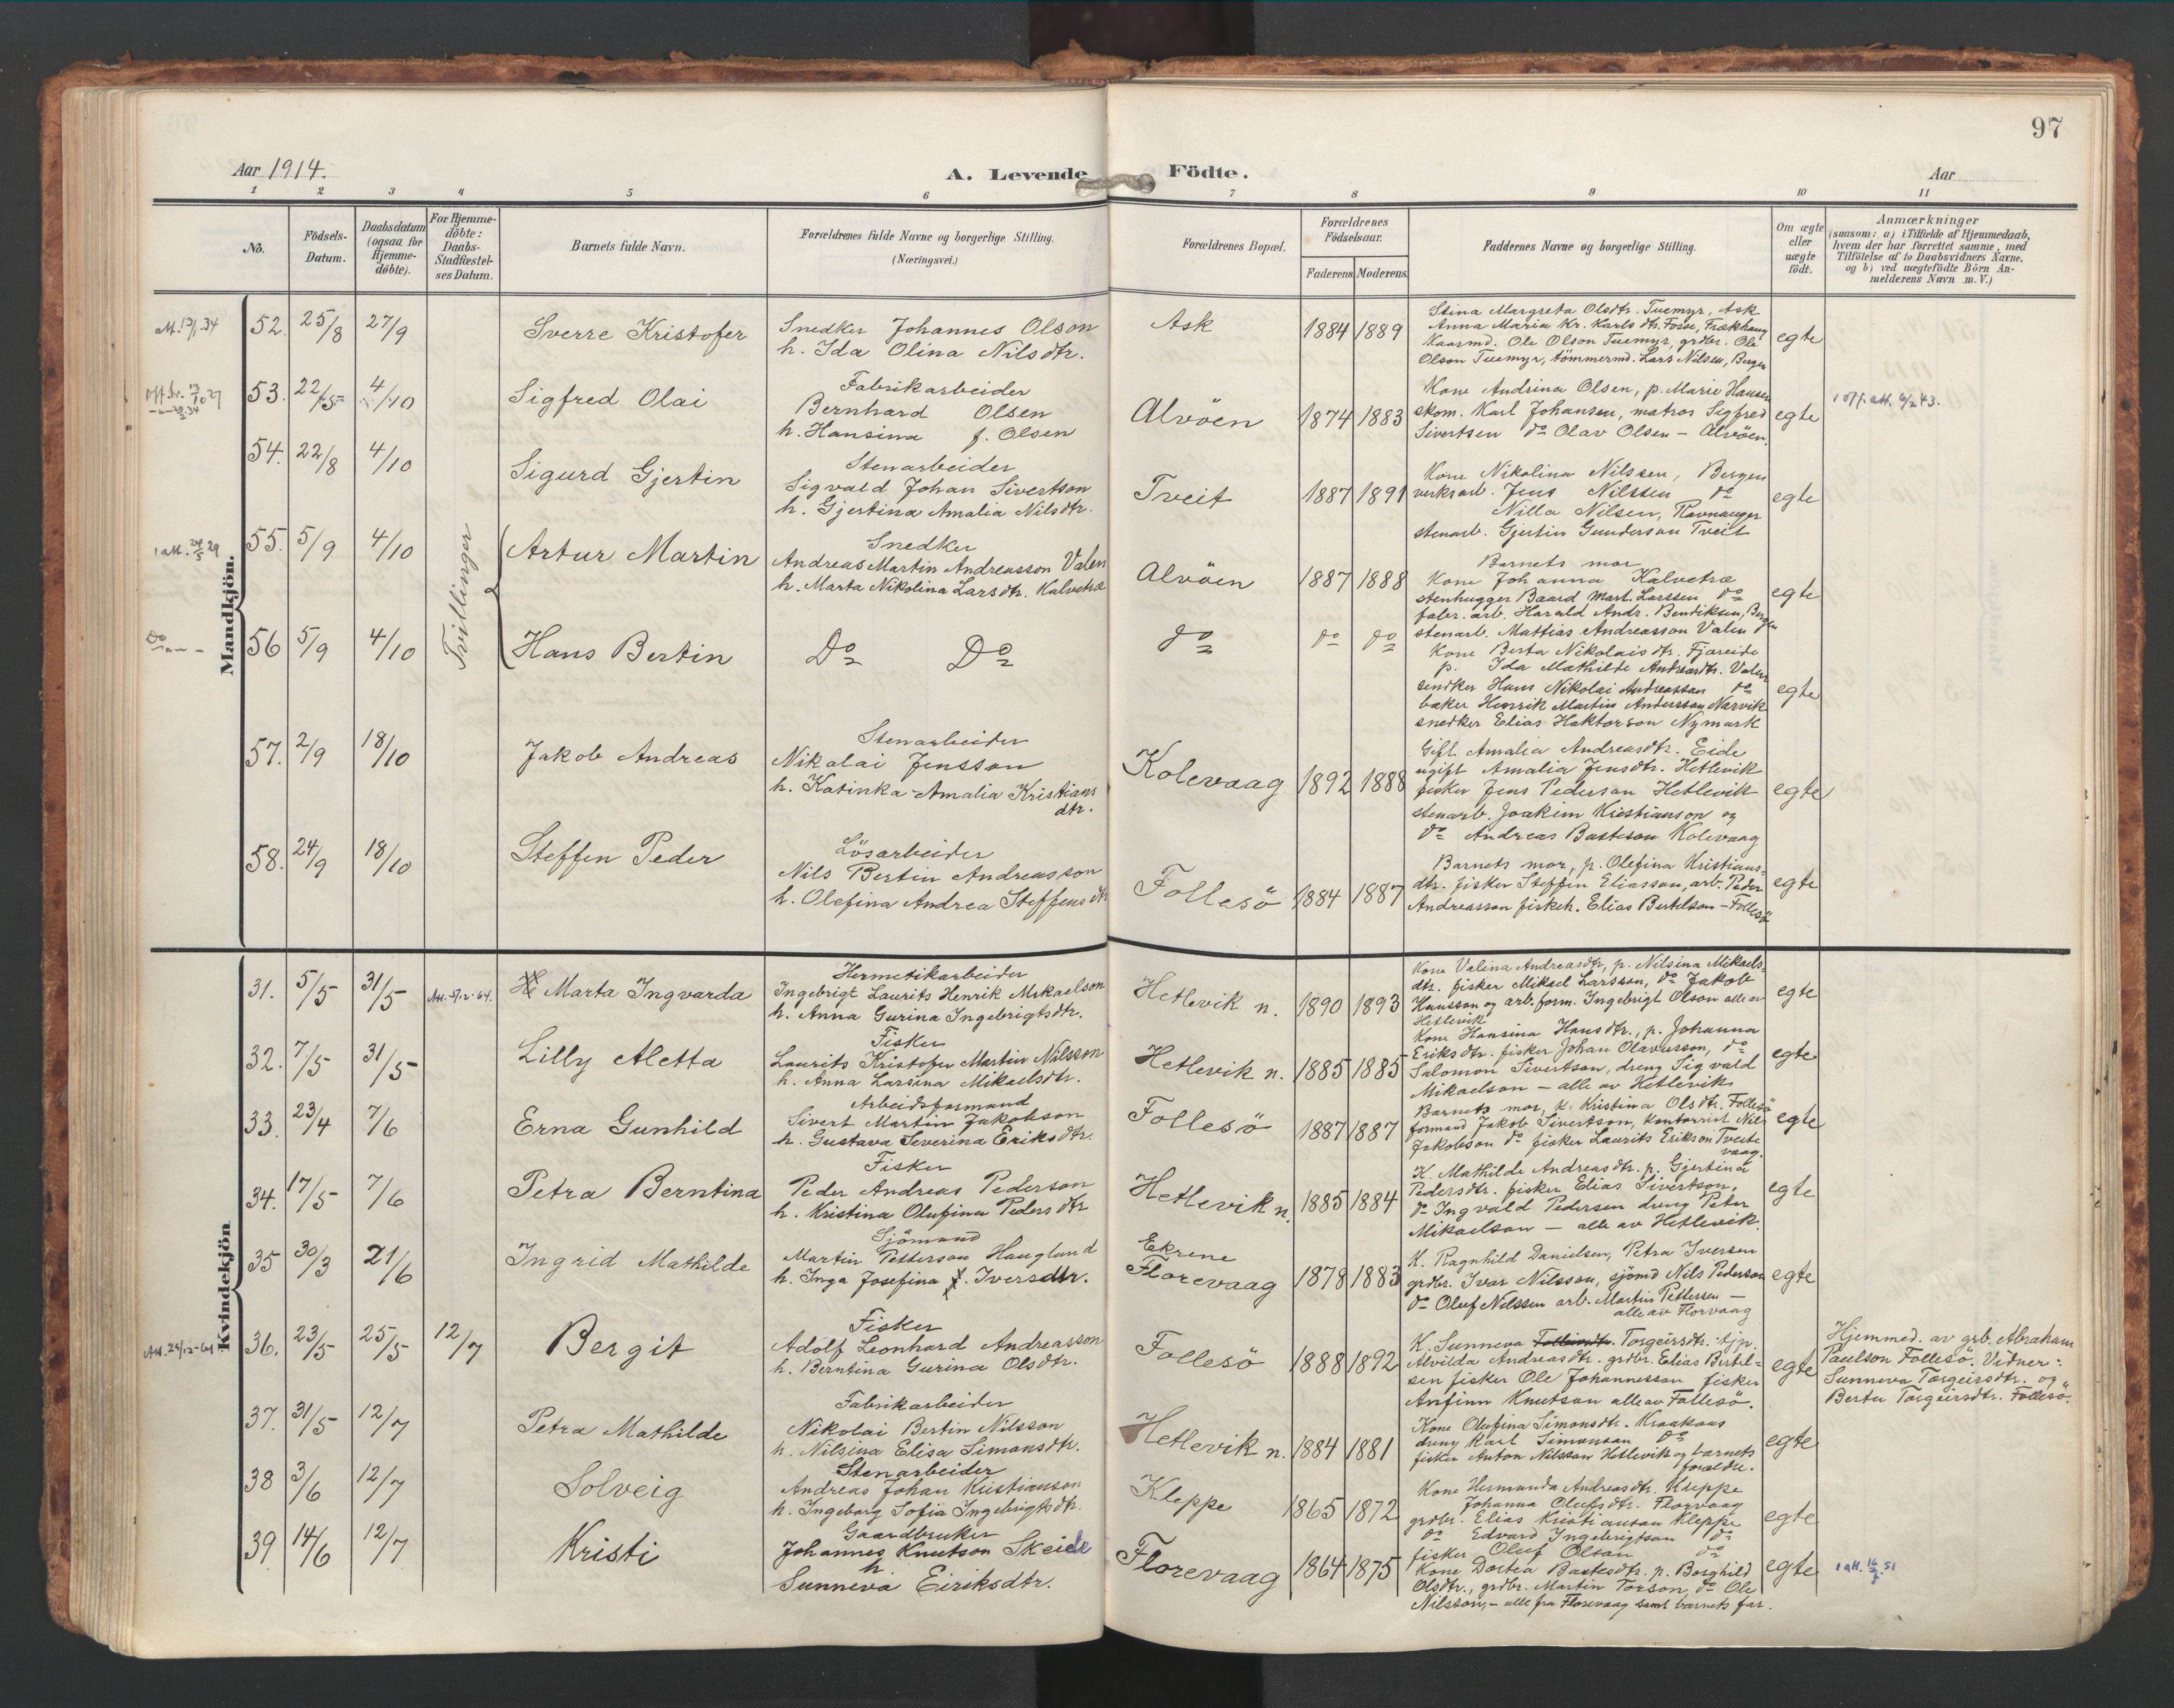 97
Aar 1914.
A. Levende
Födte.
Aar
1 2 3 4 5 6 7 8 9 10 11
No.
Födsels-
Datum.
Daabsdatum
(ogsaa for
Hjemme-
döbte).
For Hjemme-
döbte:
Daabs-
Stadfæstel-
ses Datum.
Barnets fulde Navn.
Forældrenes fulde Navne og borgerlige Stilling.
(Næringsvei.)
Forældrenes Bopæl.
Forældrenes
Födselsaar.
Faderens Moderens
Faddernes Navne og borgerlige Stilling.
Om ægte
eller
uægte
födt.
Anmærkninger
(saasom: a) i Tilfælde af Hjemmedaab,
hvem der har forrettet samme, med
Tilföielse af to Daabsvidners Navne,
og b) ved uægtefödte Börn An-
melderens Navn m.V.)
Mandkjön.
52. 25/8 27/9
Sverre Kristofer
Snedker Johannes Olson
h. Ida Olina Nilsdtr.
Ask
1884 1889
Stina Margreta Olsdtr. Tuemyr, Ask
Anna Maria Kr. Karlsdtr. Fosse, Frækhaug
Kaarmd. Ole Olson Tuemyr, grdbr. Ole
Olson Tuemyr, tömmermd. Lars Nilsen, Bergen
egte
53. 22/5 4/10
Sigfred Olai
Fabrikarbeider
Bernhard Olsen
h. Hansina f. Olsen
Alvöen
1874 1883
Kone Andrina Olsen, p. Marie Hansen
skom. Karl Johansen, matros Sigfred
Sivertsen do Olav Olsen – Alvöen.
egte
54. 22/8 4/10
Sigurd Gjertin
Stenarbeider
Sigvald Johan Sivertson
h. Gjertina Amalia Nilsdtr.
Tveit
1887 1891
Kone Nikolina Nilssen, Bergen
verksarb. Jens Nilssen do
Nilla Nilsen, Ravnanger
stenarb. Gjertin Gunderson Tveit
egte
55. 5/9 4/10
Tvillinger
Artur Martin
Snedker
Andreas Martin Andreasson Valen
h. Marta Nikolina Larsdtr. Kalvetræ
Alvöen
1887 1888
Barnets mor
Kone Johanna Kalvetræ
stenhugger Baard Mart. Larssen do
fabr. arb. Harald Andr. Bendiksen, Bergen
stenarb. Mattias Andreasson Valen
egte
56 5/9 4/10
Hans Bertin
Do Do
do
do do
Kone Berta Nikolaisdtr. Fjæreide
p. Ida Mathilde Andreasdtr. Valen
snedker Hans Nikolai Andreasson do
baker Henrik Martin Andersson Narvik
snedker Elias Haktorson Nymark
egte
57. 2/9 18/10
Jakob Andreas
Stenarbeider
Nikolai Jensson
h. Katinka Amalia Kristians
dtr.
Kolevaag
1892 1888
Gift Amalia Andreasdtr. Eide
ugift Amalia Jensdtr. Hetlevik
fisker Jens Pederson Hetlevik
stenarb. Joakim Kristianson og
do Andreas Basteson Kolevaag
egte
58. 24/9 18/10
Steffen Peder
Lösarbeider
Nils Bertin Andreasson
h. Olefina Andrea Steffensdtr
Follesö
1884 1887
Barnets mor, p. Olefina Kristians-
dtr. fisker Steffen Eliasson, arb. Peder
Andreasson fiskeh. Elias Bertelson – Follesö
egte
Kvindekjön
31. 5/5 31/5
Marta Ingvarda
Hermetikarbeider
Ingebrigt Laurits Henrik Mikaelson
h. Anna Gurina Ingebrigtsdtr.
Hetlevik n.
1890 1893
Kone Valina Andreasdtr, p. Nilsina Mikaels-
dtr. fisker Mikael Larsson, do Jakob
Hansson og arb.form. Ingebrigt Olson alle av
Hetlevik
egte
32. 7/5 31/5
Lilly Aletta
Fisker
Laurits Kristofer Martin Nilsson
h. Anna Larsina Mikaelsdtr.
Hetlevik n.
1885 1885
Kone Hansina Hansdtr., p. Johanna
Eriksdtr. fisker Johan Olavusson, do
Salomon Sivertson, dreng Sigvald
Mikaelson – alle av Hetlevik
egte
33. 23/4 7/6
Erna Gunhild
Arbeidsformand
Sivert Martin Jakobson
h. Gustava Severina Eriksdtr.
Follesö
1887 1887
Barnets mor, K. Kristina Olsdtr. Follesö
formand Jakob Sivertson, kontorist Nils
Jakobson do fisker Laurits Erikson Tveite
vaag.
egte
34. 17/5 7/6
Petra Berntina
Fisker
Peder Andreas Pederson
h. Kristina Olufina Pedersdtr
Hetlevik n.
1885 1884
K. Mathilde Andreasdtr. p. Gjertina
Pedersdtr. fisker Elias Sivertson,
do Ingvald Pedersen dreng Peter
Mikaelson – alle av Hetlevik.
egte
35 30/3 21/6
Ingrid Mathilde
Sjömand
Martin Petterson Haugland
h. Inga Josefina f. Iversdtr.
Ekrene
Florevaag
1878 1883
K. Ragnhild Danielsen, Petra Iversen
grdbr. Ivar Nilsson, sjömd Nils Pederson
do Oluf Nilssen arb. Martin Pettersen –
alle av Florvaag
egte
36. 23/5 25/5 12/7
Bergit
Fisker
Adolf Leonhard Andreasson
h. Berntina Gurina Olsdtr.
Follesö
1888 1892
K. Sunneva Torgeirsdtr. tjp.
Alvilda Andreasdtr. grdbr. Elias Bertel-
sen fisker Ole Johannesson fisker
Anfinn Knutson alle av Follesö.
egte
Hjemmed. av grb. Abraham
Paulson Follesö. Vidner:
Sunneva Torgeirsdtr. og
Berta Torgeirsdtr. Follesö.
37. 31/5 12/7
Petra Mathilde
Fabrikarbeider
Nikolai Bertin Nilsson
h. Nilsina Elisa Simonsdtr.
Hetlevik n.
1884 1881
Kone Olufina Simonsdtr. Kraakaas
dreng Karl Simonson do
fisker Anton Nilsson Hetlevik og barnets
forældre.
egte
38 3/6 12/7
Solveig
Stenarbeider
Andreas Johan Kristianson
h. Ingeborg Sofia Ingebrigtsdtr.
Kleppe
1865 1872
Kone Hermanda Andreasdtr. Kleppe
Johanna Olufsdtr. Florvaag
grdbr. Elias Kristianson Kleppe
do Edvard Ingebrigtson do
fisker Oluf Olson do
egte
39. 14/6 12/7
Kristi
Gaardbruker
Johannes Knutson Skeide
h
Sunneva Eiriksdtr.
Florevaag
1864 1875
Kone Dortea Bastesdtr. p. Borghild
Olsdtr., grdbr. Martin Torson, do Ole
Nilsson, – alle fra Florevaag samt barnets far.
egte